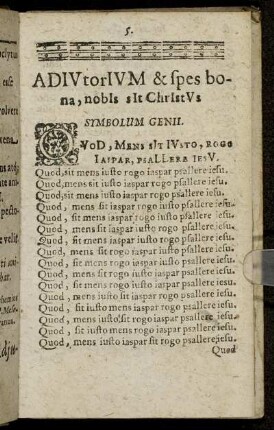 5.
ADIVtorIVM & spes bo-
na, nobIs sIt ChrIstVs
SYMBOLUM GENII.
QVOD, MENS SIT IVSTO, ROGO
IASPAR, PSALLERE IESV.
Quod, sit mens iusto rogo iaspar psallere iesu.
Quod, mens sit iusto iaspar rogo psallere iesu.
Quod, sit mens iusto iaspar rogo psallere iesu.
Quod, mens sit iusto iaspar rogo psallere iesu.
Quod, sit mens iusto rogo iaspar psallere iesu.
Quod, mens sit iusto rogo iaspar psallere iesu.
Quod, mens iusto sit rogo iaspar psallere iesu.
Quod, sit iusto mens rogo iaspar psallere iesu.
Quod, sit mens iusto rogo iaspar psallere iesu.
Quod, mens sit iusto rogo iaspar psallere iesu.
Quod, sit iusto mens rogo iaspar psallere iesu.
Quod, mens iusto sit rogo iaspar psallere iesu.
Quod, sit iusto mens rogo iaspar psallere iesu.
Quod, sit mens rogo iaspar iusto psallere iesu.
Quod, mens sit rogo iaspar iusto psallere iesu.
Quod, mens rogo iaspar sit iusto psallere iesu.
Quod